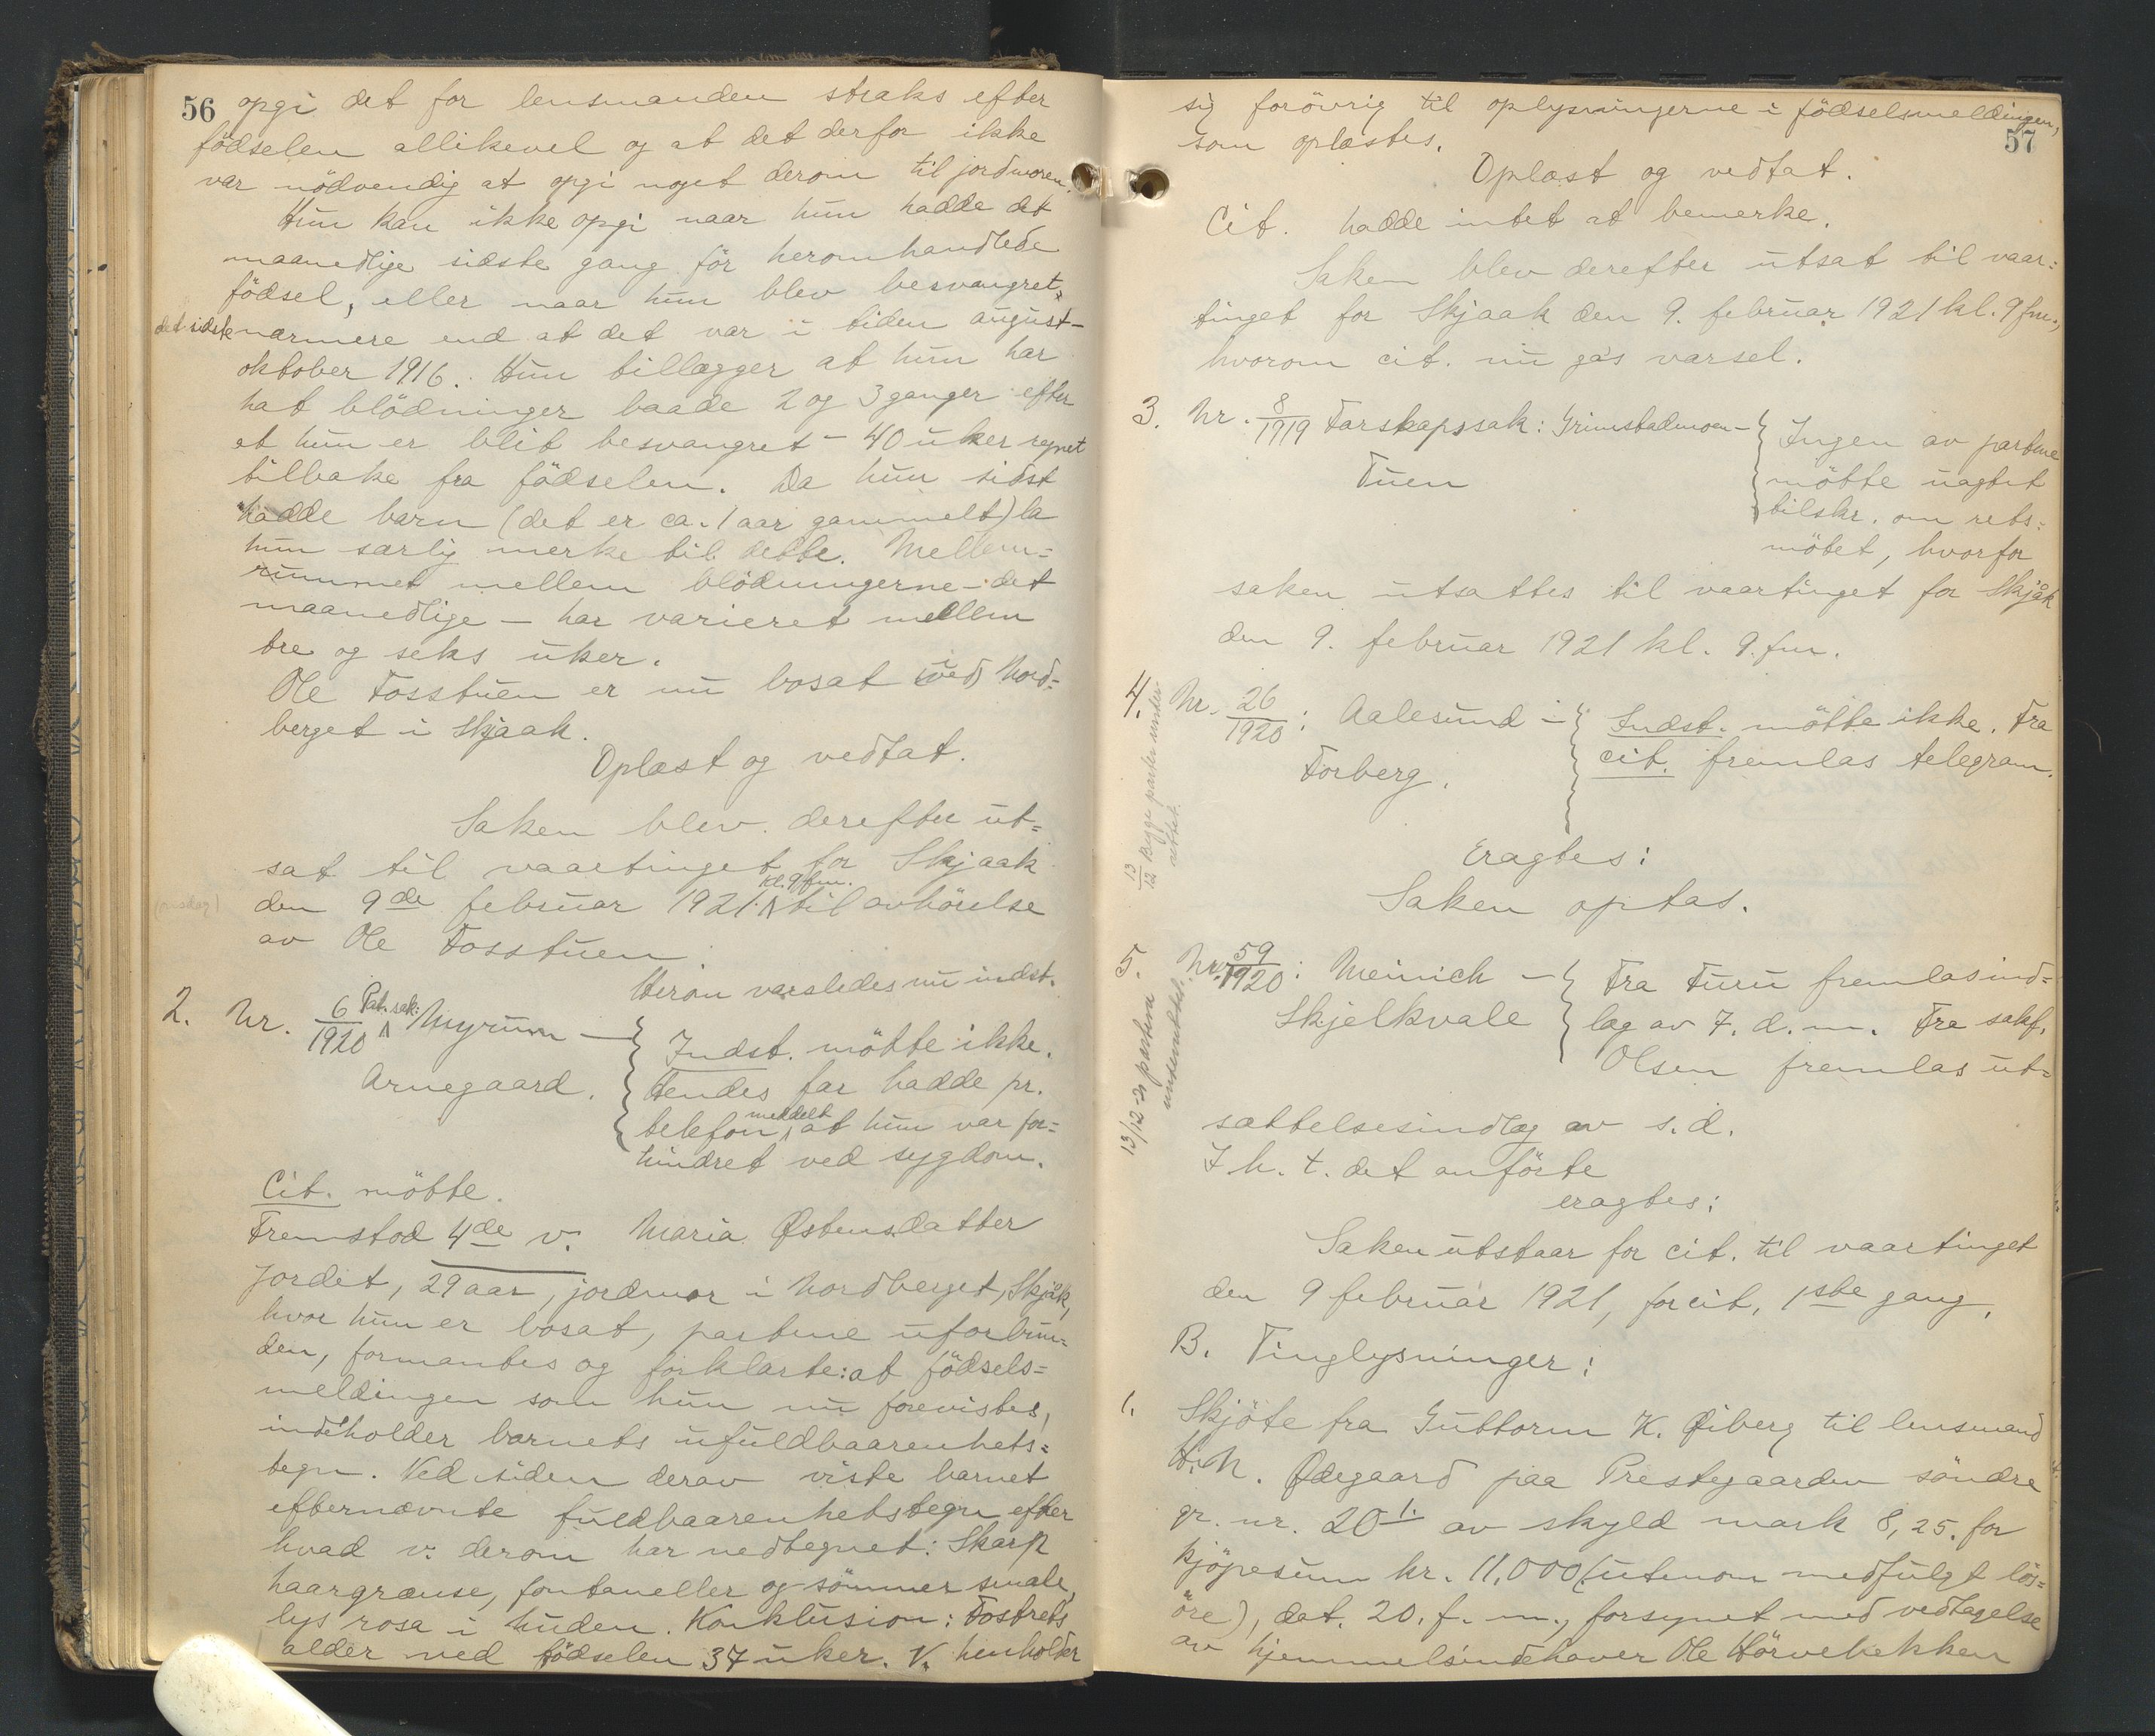 56
opgi det for lensmanden straks efter
födselen allikevel og at det derfor ikke
var nödvendig at opgi noget derom til jordmoren.
Hun kan ikke opgi naar hun hadde det
maanedlige sidste gang för heromhandlede
födsel, eller naar hun blev besvangret,
det sidste nærmere end at det var i tiden august-
oktober 1916. Hun tillægger at hun har
hat blödninger baade 2 og 3 ganger efter
at hun er blit besvangret - 40 uker regnet
tilbake fra födselen. Da hun sidst
hadde barn (det er ca. 1 aar gammelt) la
hun særlig merke til dette. Mellem=
rummet mellem blödningerne - det
maanedlige - har varieret mellem
tre og seks uker.
Ole Fosstuen er nu bosat i Nord=
berget i Skjaak.
Oplæst og vedtat.
Saken blev derefter ut=
sat til vaartinget for Skjaak
den 9de februar 1921 kl. 9 fm. til avhörelse
av Ole Fosstuen.
Herom varsledes nu indst.
2. Nr. 6/1920 Pat. sak: Myrum -
Arnegaard.
Indst. mötte ikke.
Hendes far hadde pr.
telefon meddelt at hun var for=
hindret ved sygdom.
Cit. mötte.
Fremstod 4de v. Maria Østensdatter
Jordet, 29 aar, jordmor i Nordberget, Skjåk,
hvor hun er bosat, partene uforbun=
den, formantes og forklarte: at födsels=
meldingen som hun nu forevistes,
indeholder barnets ufuldbaarenhets=
tegn. Ved siden derav viste barnet
efternævnte fuldbaarenhetstegn efter
hvad v. derom har nedtegnet: Skarp
haargrænse, fontaneller og sömmer smale,
lys rosa i huden. Konklusion: Fostrets
alder ved födselen 37 uker. V. henholder
57
sig forövrig til oplysningerne i födselsmeldingen,
som oplæstes.
Oplæst og vedtat.
Cit. hadde intet at bemerke.
Saken blev derefter utsat til vaar=
tinget for Skjaak den 9. februar 1921 kl. 9 fm.,
hvorom cit. nu gas varsel.
3. Nr. 8/1919 Farskapssak: Grimstadmoen -
Tuen
Ingen av partene
mötte uagtet
tilskr. om rets=
mötet, hvorfor
saken utsattes til vaartinget for Skjåk
den 9. februar 1921 kl. 9. fm.
4. Nr. 26/1920: Aalesund -
Forberg.
Indst. mötte ikke. Fra
cit. fremlas telegram.
13/12 Begge parter under-
rettet.
Eragtes:
Saken optas.
5. Nr. 59/1920: Meinich -
Skjelkvale
Fra Furu fremlas ind=
læg av 7. d. m. Fra sakf.
Olsen fremlas ut=
13/12-20 partene
underrettet.
sættelsesindlæg av s. d.
I h. t. det anförte
eragtes:
Saken utstaar for cit. til vaartinget
den 9 februar 1921, for cit. 1ste gang.
B. Tinglysninger:
1. Skjöte fra Guttorm K. Øiberg til lensmand
H. N. Ødegaard paa Prestegaarden söndre
gr. nr. 20 1. av skyld mark 8,25. for
kjöpesum kr. 11,000 (utenom medfulgt lös=
öre), dat. 20. f. m., forsynet med vedtagelse
av hjemmelsindehaver Ole Hörvebakken